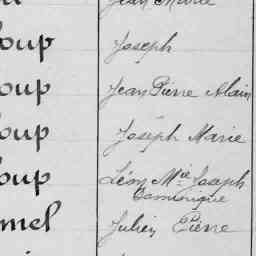 Jean Marie
oup Joseph
oup Jean Pierre Alain
oup Joseph Marie
oup Léon Mie Joseph
Dominique
mel Julien Pierre